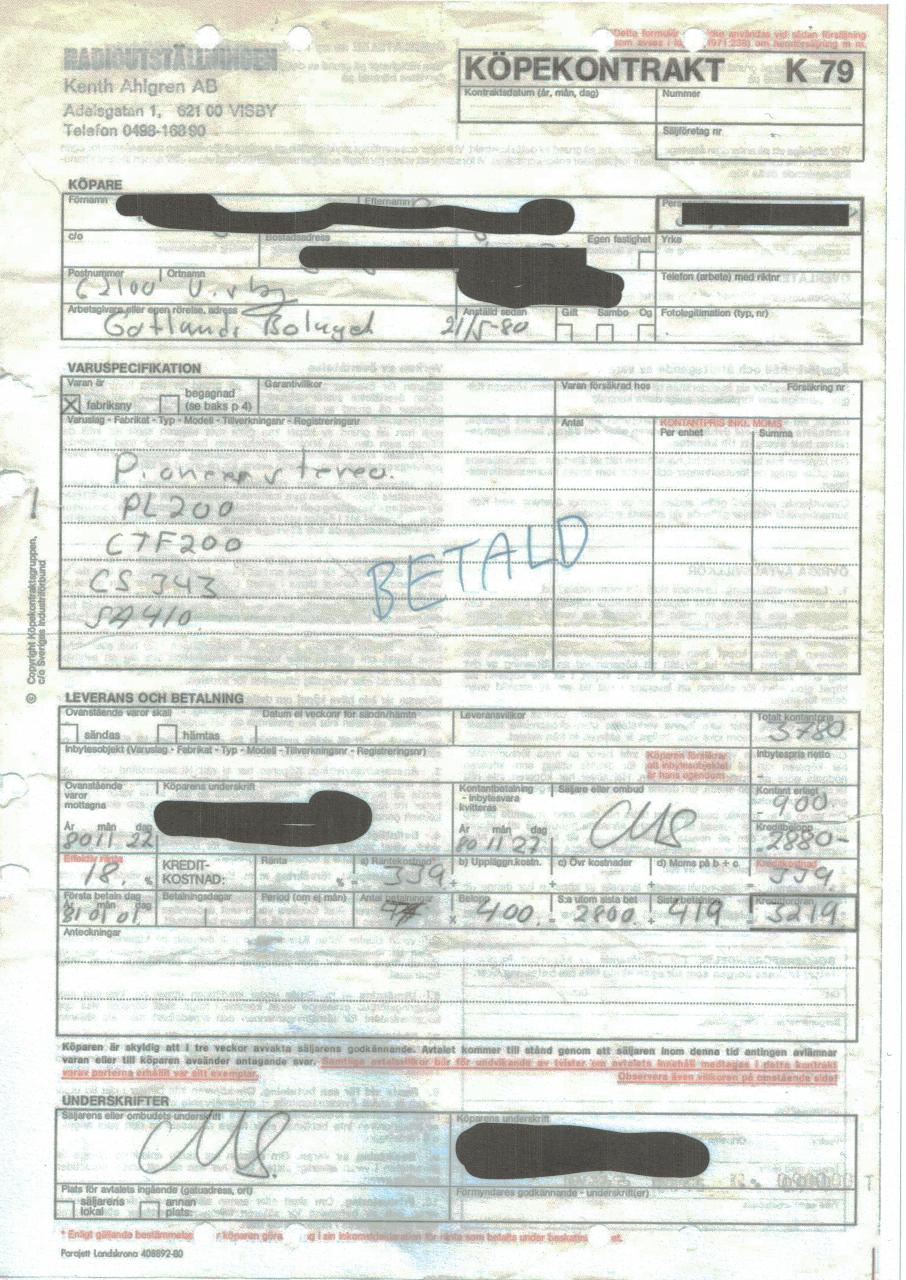 Detta formulär
som avses i
(1971:238) om hemförsäljning m m.
Kenth Ahlgren AB
Adelsgatan 1, 621 00 VISBY
Telefon 0498-168 90
KÖPEKONTRAKT K 79
Kontraktsdatum (år, mån, dag) Nummer
Säljföretag nr
KÖPARE
Förnamn Efternamn Pers
c/o Bostadsadress Egen fastighet Yrke
Postnummer Ortnamn Telefon (arbete) med riktnr
62100 Visby
Arbetsgivare eller egen rörelse, adress Anställd sedan Gift Sambo Og Fotolegitimation (typ, nr)
Gotlands Bolaget 21/5-80
VARUSPECIFIKATION
Varan är Garantivillkor Varan försäkrad hos Försäkring nr
fabriksny begagnad (se baks p 4)
Varuslag - Fabrikat - Typ - Modell - Tillverkningsnr - Registreringsnr Antal KONTANTPRIS INKL. MOMS
Per enhet Summa
Pioneer stereo.
PL200
CTF200
BETALD
CS 343
SA 410.
© Copyright Köpekontraktsgruppen,
c/o Sveriges Industriförbund
LEVERANS OCH BETALNING
Ovanstående varor skall Datum el veckonr för sändn/hämtn Leveransvillkor Totalt kontantpris
sändas hämtas 3780
Inbytesobjekt (Varuslag - Fabrikat - Typ - Modell - Tillverkningsnr - Registreringsnr) Köparen försäkrar att inbytesobjektet är hans egendom Inbytespris netto
-
Ovanstående varor mottagna Köparens underskrift Kontantbetalning - inbytesvara kvitteras Säljare eller ombud Kontant erlagt
- 900
År mån dag År mån dag Kreditbelopp
80 11 22 80 11 27 2880-
Effektiv ränta KREDIT-KOSTNAD: Ränta a) Räntekostnad* b) Uppläggn.kostn. c) Övr kostnader d) Moms på b + c Kreditkostnad
18, % % = 339 + + + = 339.
Första betaln dag Betalningsdagar Period (om ej mån) Antal betalningar Belopp S:a utom sista bet Sista betalning Kreditfordran
År mån dag
81 01 01 x 400. = 2800 + 419 = 3219.
Anteckningar
Köparen är skyldig att i tre veckor avvakta säljarens godkännande. Avtalet kommer till stånd genom att säljaren inom denna tid antingen avlämnar
varan eller till köparen avsänder antagande svar. Samtliga avtalsvillkor bör för undvikande av tvister om avtalets innehåll medtagas i detta kontrakt
varav parterna erhållit var sitt exemplar. Observera även villkoren på omstående sida!
UNDERSKRIFTER
Säljarens eller ombudets underskrift Köparens underskrift
Plats för avtalets ingående (gatuadress, ort) Formyndares godkännande - underskrift(er)
säljarens lokal annan plats:
* Enligt gällande bestämmelse köparen göra i sin inkomstdeklaration för ränta som betalts under beskattn et.
Parajett Landskrona 408892-80